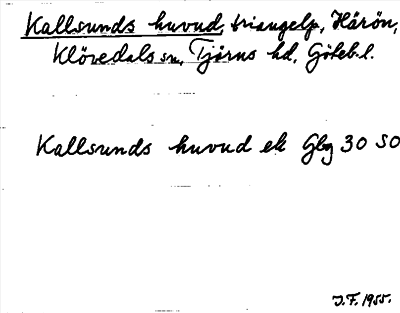 Kallsunds huvud, triangelp, Härön,
Klövedals sn, Tjörns hd, Göteb. l.
Kallsunds huvud ek Gbg 30 SO
J.F. 1955.